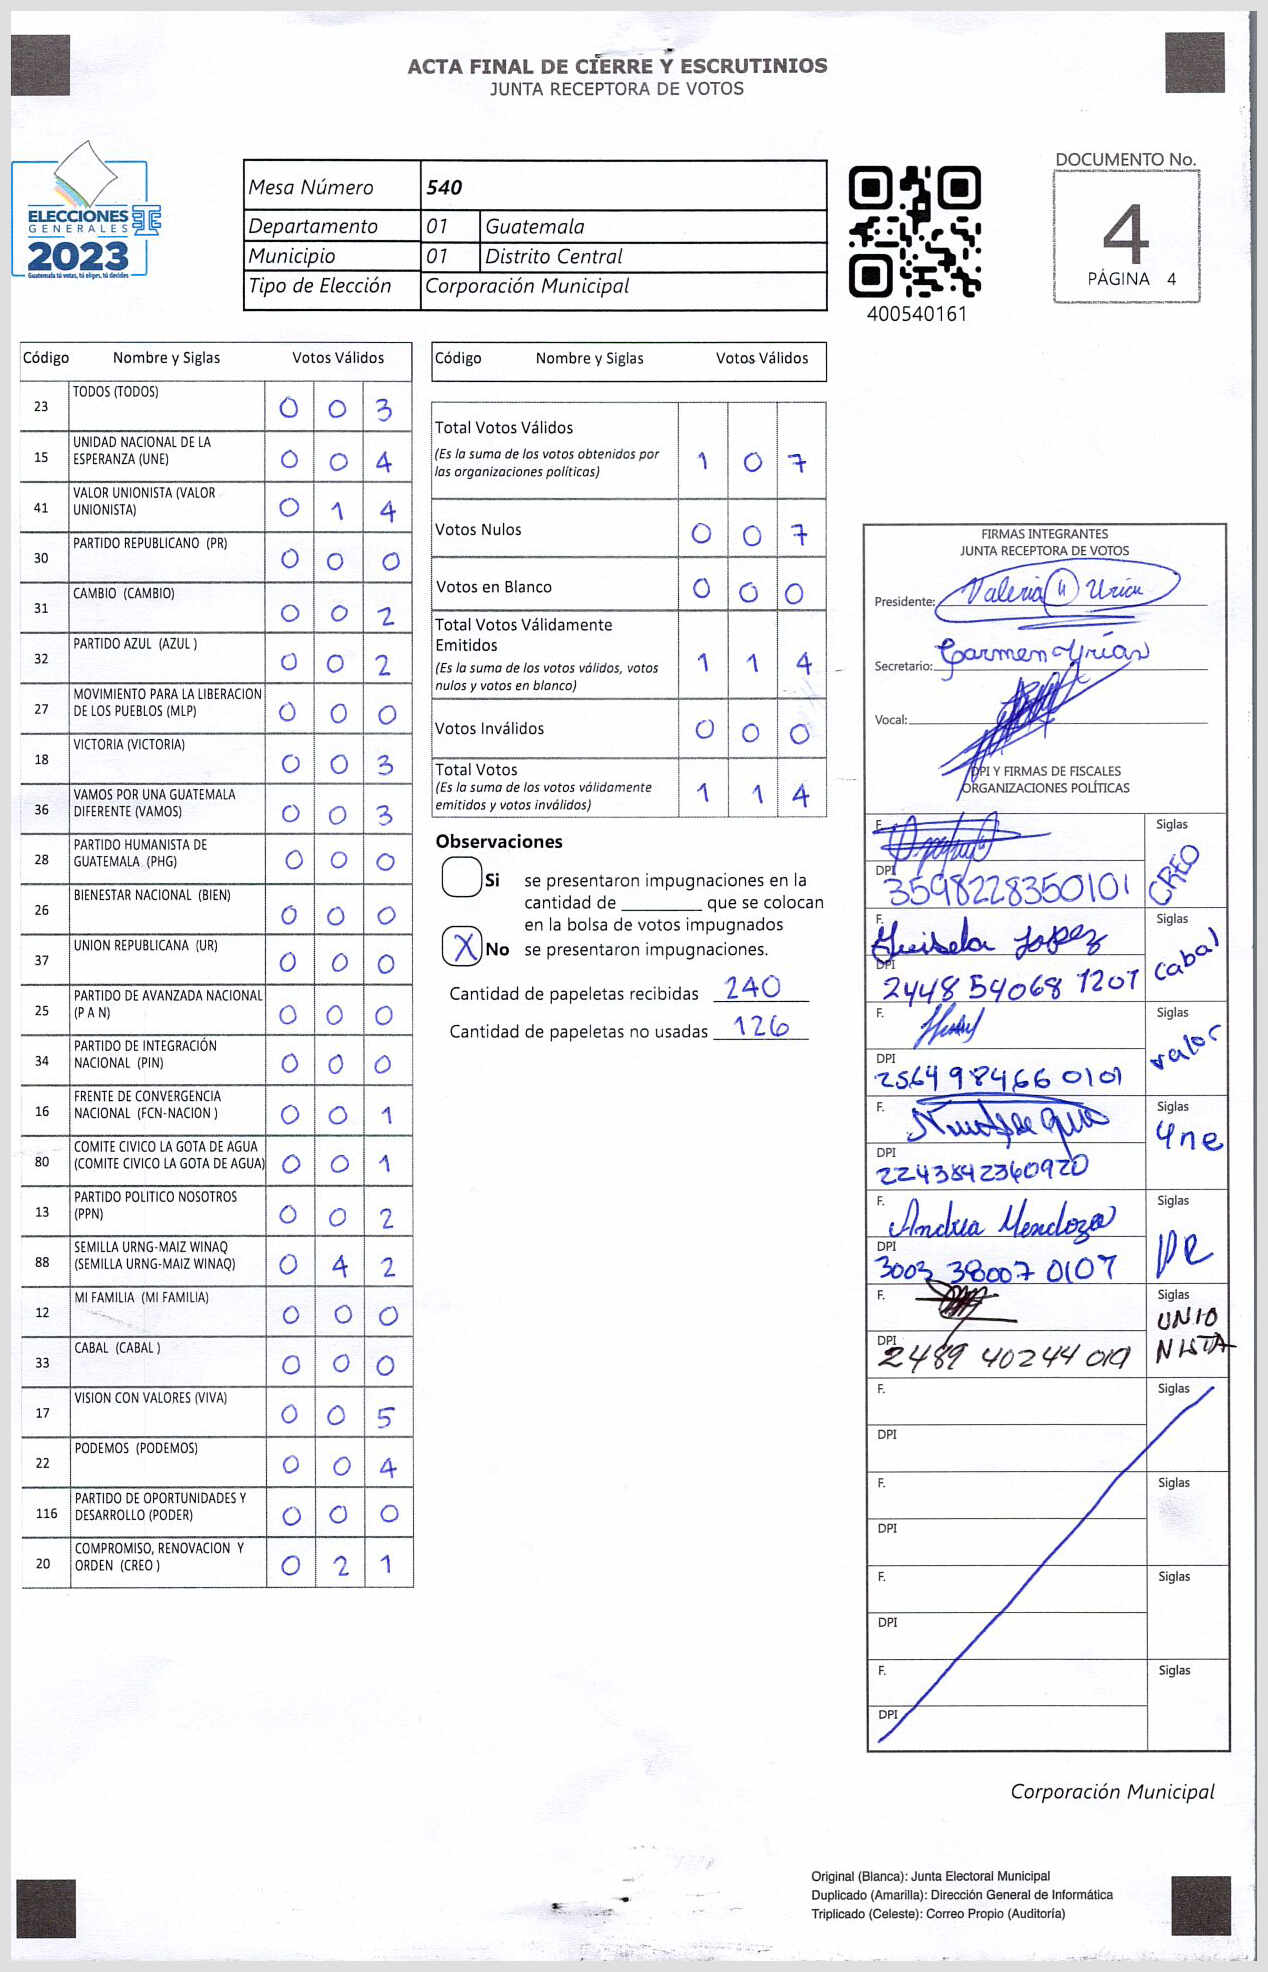 ACTA FINAL DE CIERRE Y ESCRUTINIOS
JUNTA RECEPTORA DE VOTOS
ELECCIONES
GENERALES
2023
Guatemala tú votas, tú eliges, tú decides
Mesa Número 540
Departamento 01 Guatemala
Municipio 01 Distrito Central
Tipo de Elección Corporación Municipal
400540161
DOCUMENTO No.
4
PÁGINA 4
Código Nombre y Siglas Votos Válidos
23 TODOS (TODOS) 0 0 3
15 UNIDAD NACIONAL DE LA
ESPERANZA (UNE) 0 0 4
41 VALOR UNIONISTA (VALOR
UNIONISTA) 0 1 4
30 PARTIDO REPUBLICANO (PR) 0 0 0
31 CAMBIO (CAMBIO) 0 0 2
32 PARTIDO AZUL (AZUL ) 0 0 2
27 MOVIMIENTO PARA LA LIBERACION
DE LOS PUEBLOS (MLP) 0 0 0
18 VICTORIA (VICTORIA) 0 0 3
36 VAMOS POR UNA GUATEMALA
DIFERENTE (VAMOS) 0 0 3
28 PARTIDO HUMANISTA DE
GUATEMALA (PHG) 0 0 0
26 BIENESTAR NACIONAL (BIEN) 0 0 0
37 UNION REPUBLICANA (UR) 0 0 0
25 PARTIDO DE AVANZADA NACIONAL
(P A N) 0 0 0
34 PARTIDO DE INTEGRACIÓN
NACIONAL (PIN) 0 0 0
16 FRENTE DE CONVERGENCIA
NACIONAL (FCN-NACION ) 0 0 1
80 COMITE CIVICO LA GOTA DE AGUA
(COMITE CIVICO LA GOTA DE AGUA) 0 0 1
13 PARTIDO POLITICO NOSOTROS
(PPN) 0 0 2
88 SEMILLA URNG-MAIZ WINAQ
(SEMILLA URNG-MAIZ WINAQ) 0 4 2
12 MI FAMILIA (MI FAMILIA) 0 0 0
33 CABAL (CABAL ) 0 0 0
17 VISION CON VALORES (VIVA) 0 0 5
22 PODEMOS (PODEMOS) 0 0 4
116 PARTIDO DE OPORTUNIDADES Y
DESARROLLO (PODER) 0 0 0
20 COMPROMISO, RENOVACION Y
ORDEN (CREO ) 0 2 1
Código Nombre y Siglas Votos Válidos
Total Votos Válidos
(Es la suma de los votos obtenidos por
las organizaciones políticas) 1 0 7
Votos Nulos 0 0 7
Votos en Blanco 0 0 0
Total Votos Válidamente
Emitidos
(Es la suma de los votos válidos, votos
nulos y votos en blanco) 1 1 4
Votos Inválidos 0 0 0
Total Votos
(Es la suma de los votos válidamente
emitidos y votos inválidos) 1 1 4
Observaciones
Si se presentaron impugnaciones en la
cantidad de ________ que se colocan
en la bolsa de votos impugnados
X No se presentaron impugnaciones.
Cantidad de papeletas recibidas 240
Cantidad de papeletas no usadas 126
FIRMAS INTEGRANTES
JUNTA RECEPTORA DE VOTOS
Presidente: Valeria
Secretario: Carmen
Vocal:
DPI Y FIRMAS DE FISCALES
ORGANIZACIONES POLÍTICAS
F. Siglas
DPI 3598228350101 CREO
F. Lopez Siglas
DPI 2448 54068 1201 Cabal
F. Siglas
DPI 2564 98466 0101 valor
F. Siglas
DPI 2243842360920 Une
F. Andrea Mendoza Siglas
DPI 3003 38007 0107 PR
F. Siglas
DPI 2489 40244 0101 UNIO
NISTA
F. Siglas
DPI
F. Siglas
DPI
F. Siglas
DPI
F. Siglas
DPI
Corporación Municipal
Original (Blanca): Junta Electoral Municipal
Duplicado (Amarilla): Dirección General de Informática
Triplicado (Celeste): Correo Propio (Auditoría)